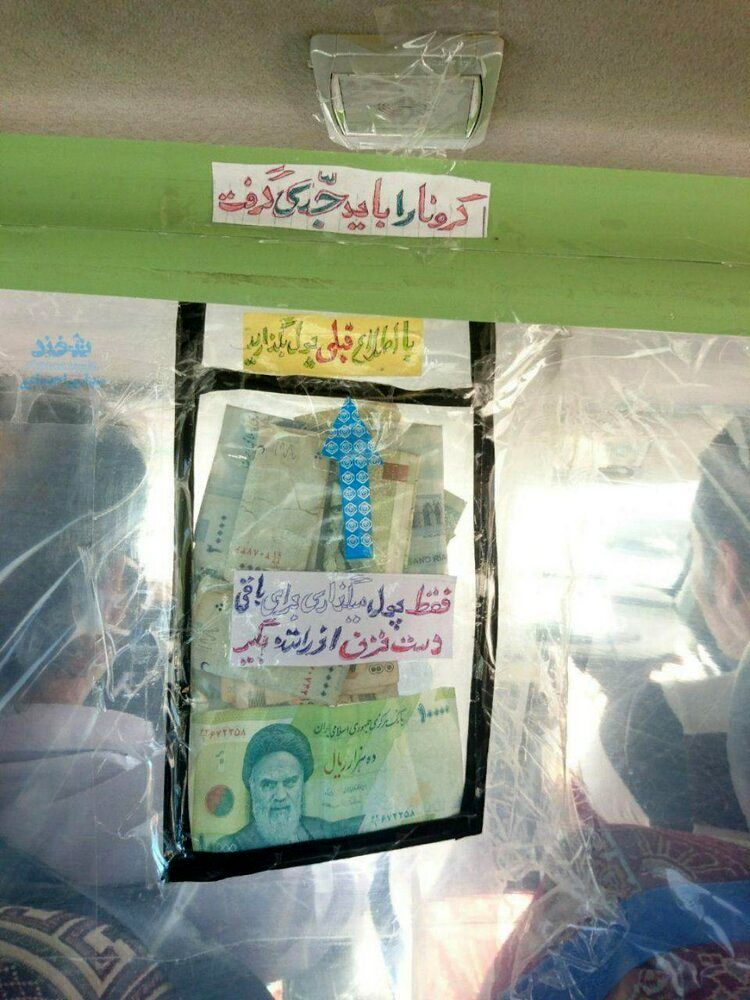 کرونا را باید جدّی گرفت
با اطلاع قبلی پول بگذارید
فقط پول میگذاری برای باقی
دست نزن از راننده بگیر
بانک مرکزی جمهوری اسلامی ایران
۱۰۰۰۰
۶۷۲۲۵۸
ده هزار ریال
۶۷۲۲۵۸